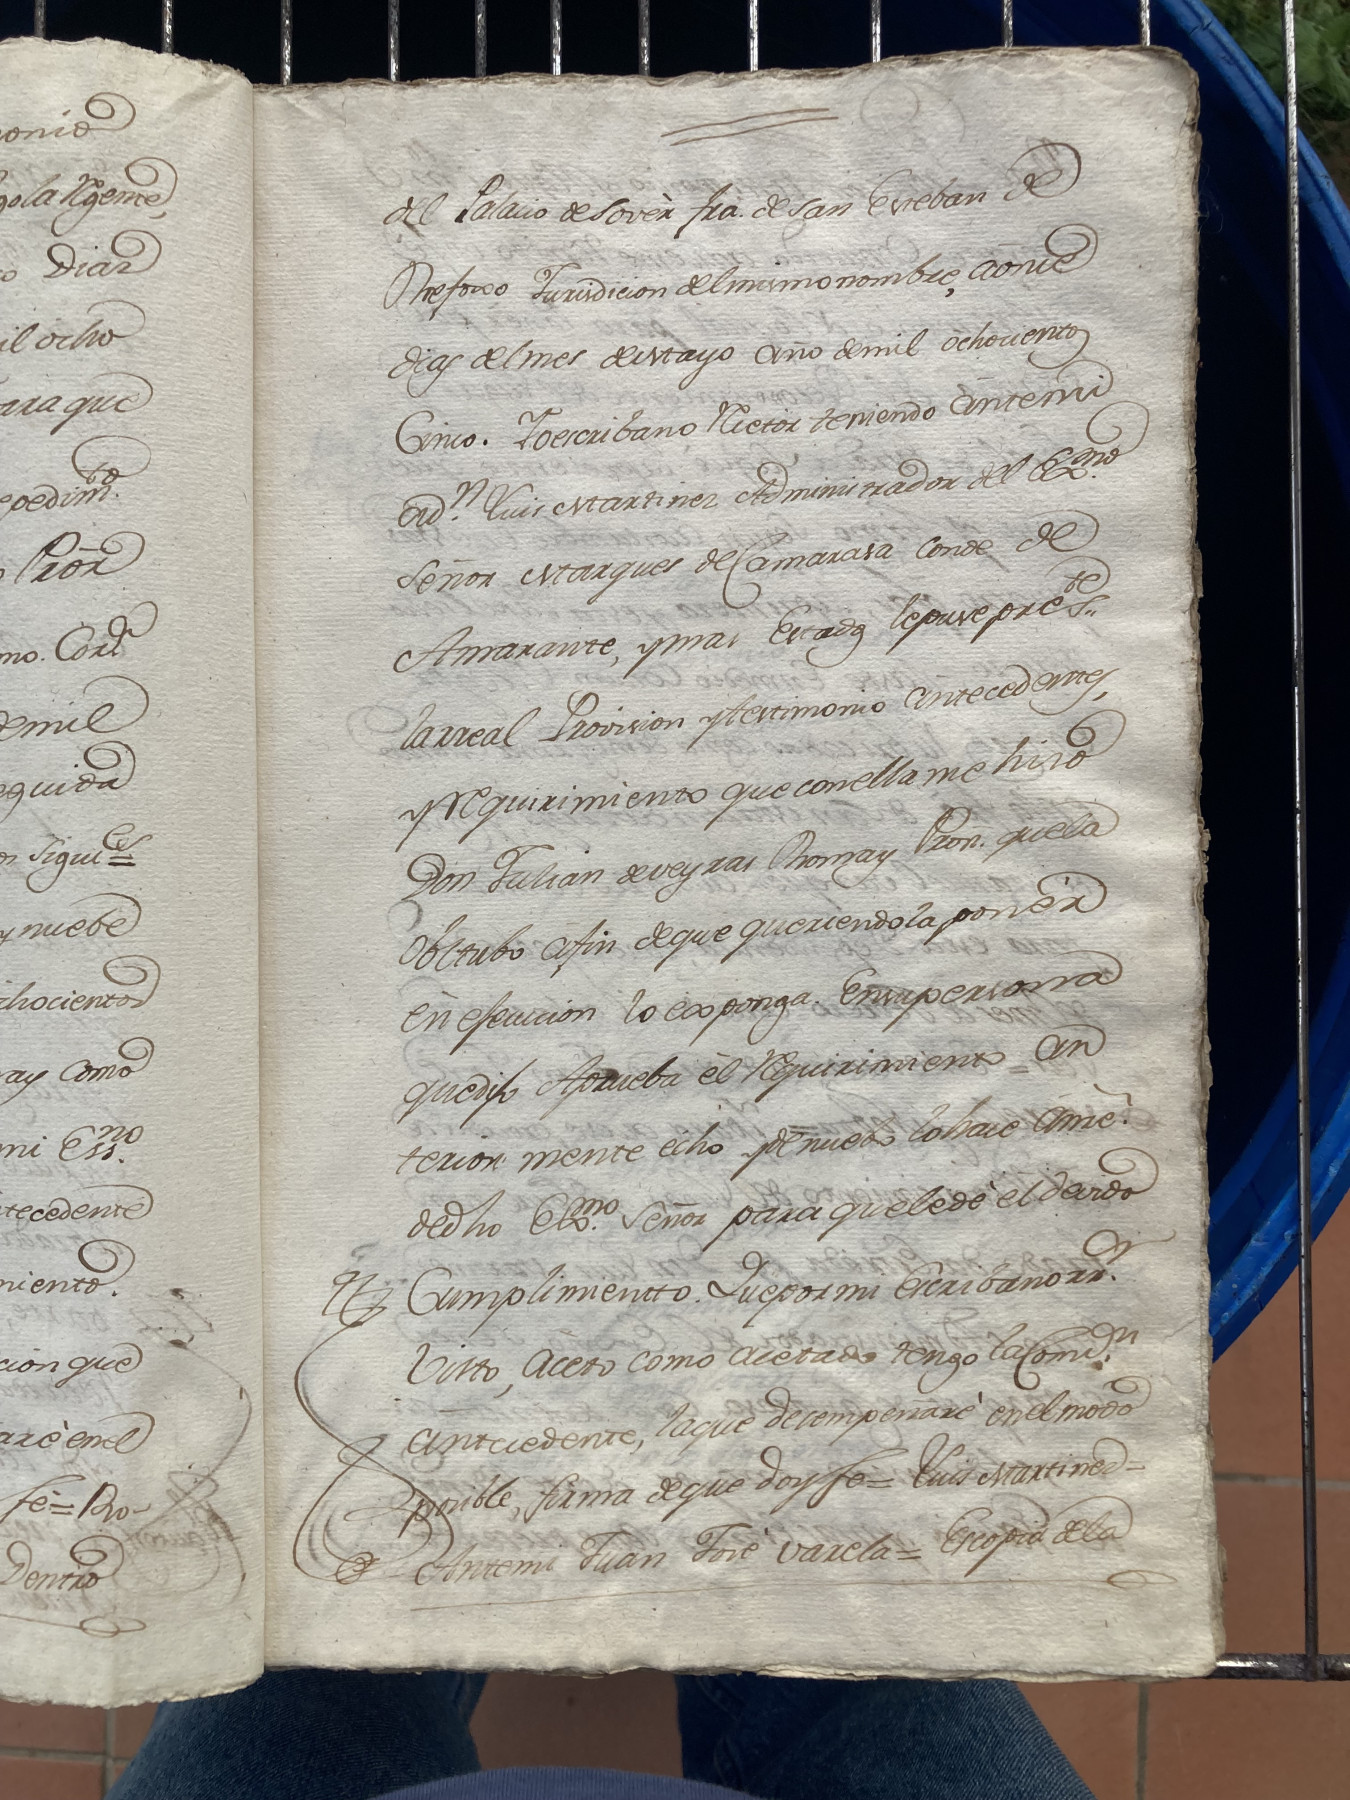 onio
gola Rgente,
o Diaz
il ocho
ara que
epedim.to
Pror
mo. Cord.l
demil
eguida
sigui.es
y nuebe
chocientos
ay como
mi Ess.no
tecedente
miento.
cion que
aré en el
fé = Ro-
Dentro
del Palacio de Sovèr fra. de San Esteban de
Jurisdicion del mismo nombre, aonce
dias del mes de Mayo año de mil ochocientos
Cinco. Yo escribano Rector teniendo antemi
aD.n Luis Martinez Administrador del Ex.mo
Señor Marques de Camarasa Conde de
Amarante, y mas Estados le puse pres.te
la rreal Provision y testimonio antecedentes,
y Requirimiento que con ella me hizo
Don Julian deveyras Romay Pror. que la
Obtubo afin de que queriendola ponér
en efecucion lo exponga. En su persona
que dijo Aprueba èl Requirimiento = an
terior mente echo y de nuebo lo hace àmi.
de dho Ex.mo Señor para que le dè el devido
Cumplimientto. Que por mi Escribano rr.or
Visto, àceto como acetada tengo la Comi.on
antecedente, la que desempeñaré en el modo
posible, firma de que doy fé = Luis Martinez =
Antemi Juan José Varela = Es copia de la